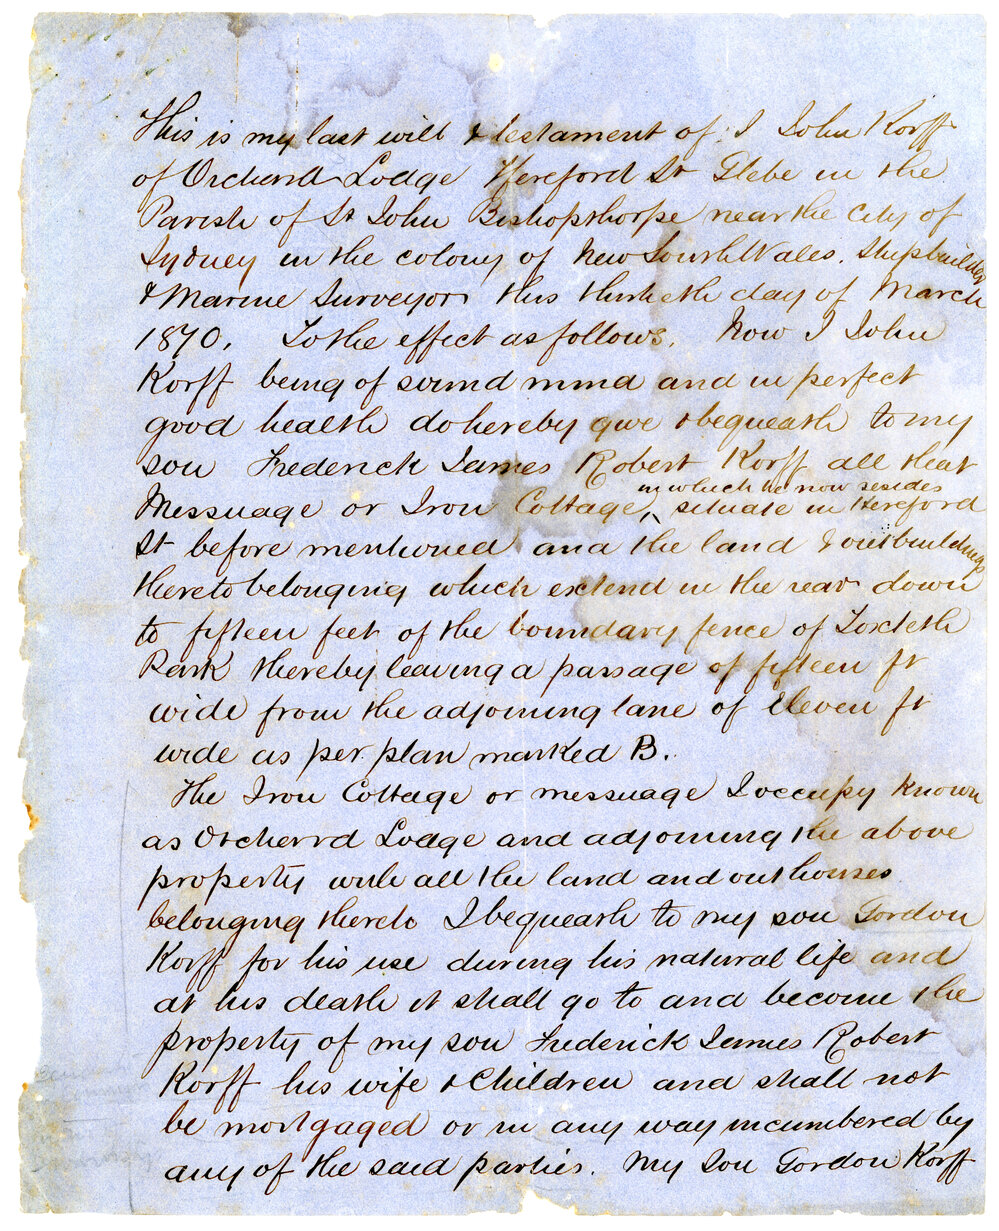 This is my last will & testament of I John Korff
of Orchard Lodge Hereford St Glebe in the
Parish of St John Bishopthorpe near the city of
Sydney in the colony of New South Wales. Shipbuilder
& Marine Surveyor this thirtieth day of March
1870. To the effect as follows. Now I John
Korff being of sound mind and in perfect
good health do hereby give & bequeath to my
son Frederick James Robert Korff all that
in which he now resides
Messuage or Iron Cottage, situate in Hereford
St before mentioned and the land & outbuildings
thereto belonging which extend in the rear down
to fifteen feet of the boundary fence of Toxteth
Park thereby leaving a passage of fifteen ft
wide from the adjoining lane of Eleven ft
wide as per plan marked B.
The Iron Cottage or messuage I occupy known
as Orcherrd Lodge and adjoining the above
property with all the land and outhouses
belonging thereto I bequeath to my son Gordon
Korff for his use during his natural life and
at his death it shall go to and become the
property of my son Frederick James Robert
Korff his wife & Children and shall not
be mortgaged or in any way incumbered by
any of the said parties. My Son Gordon Korff